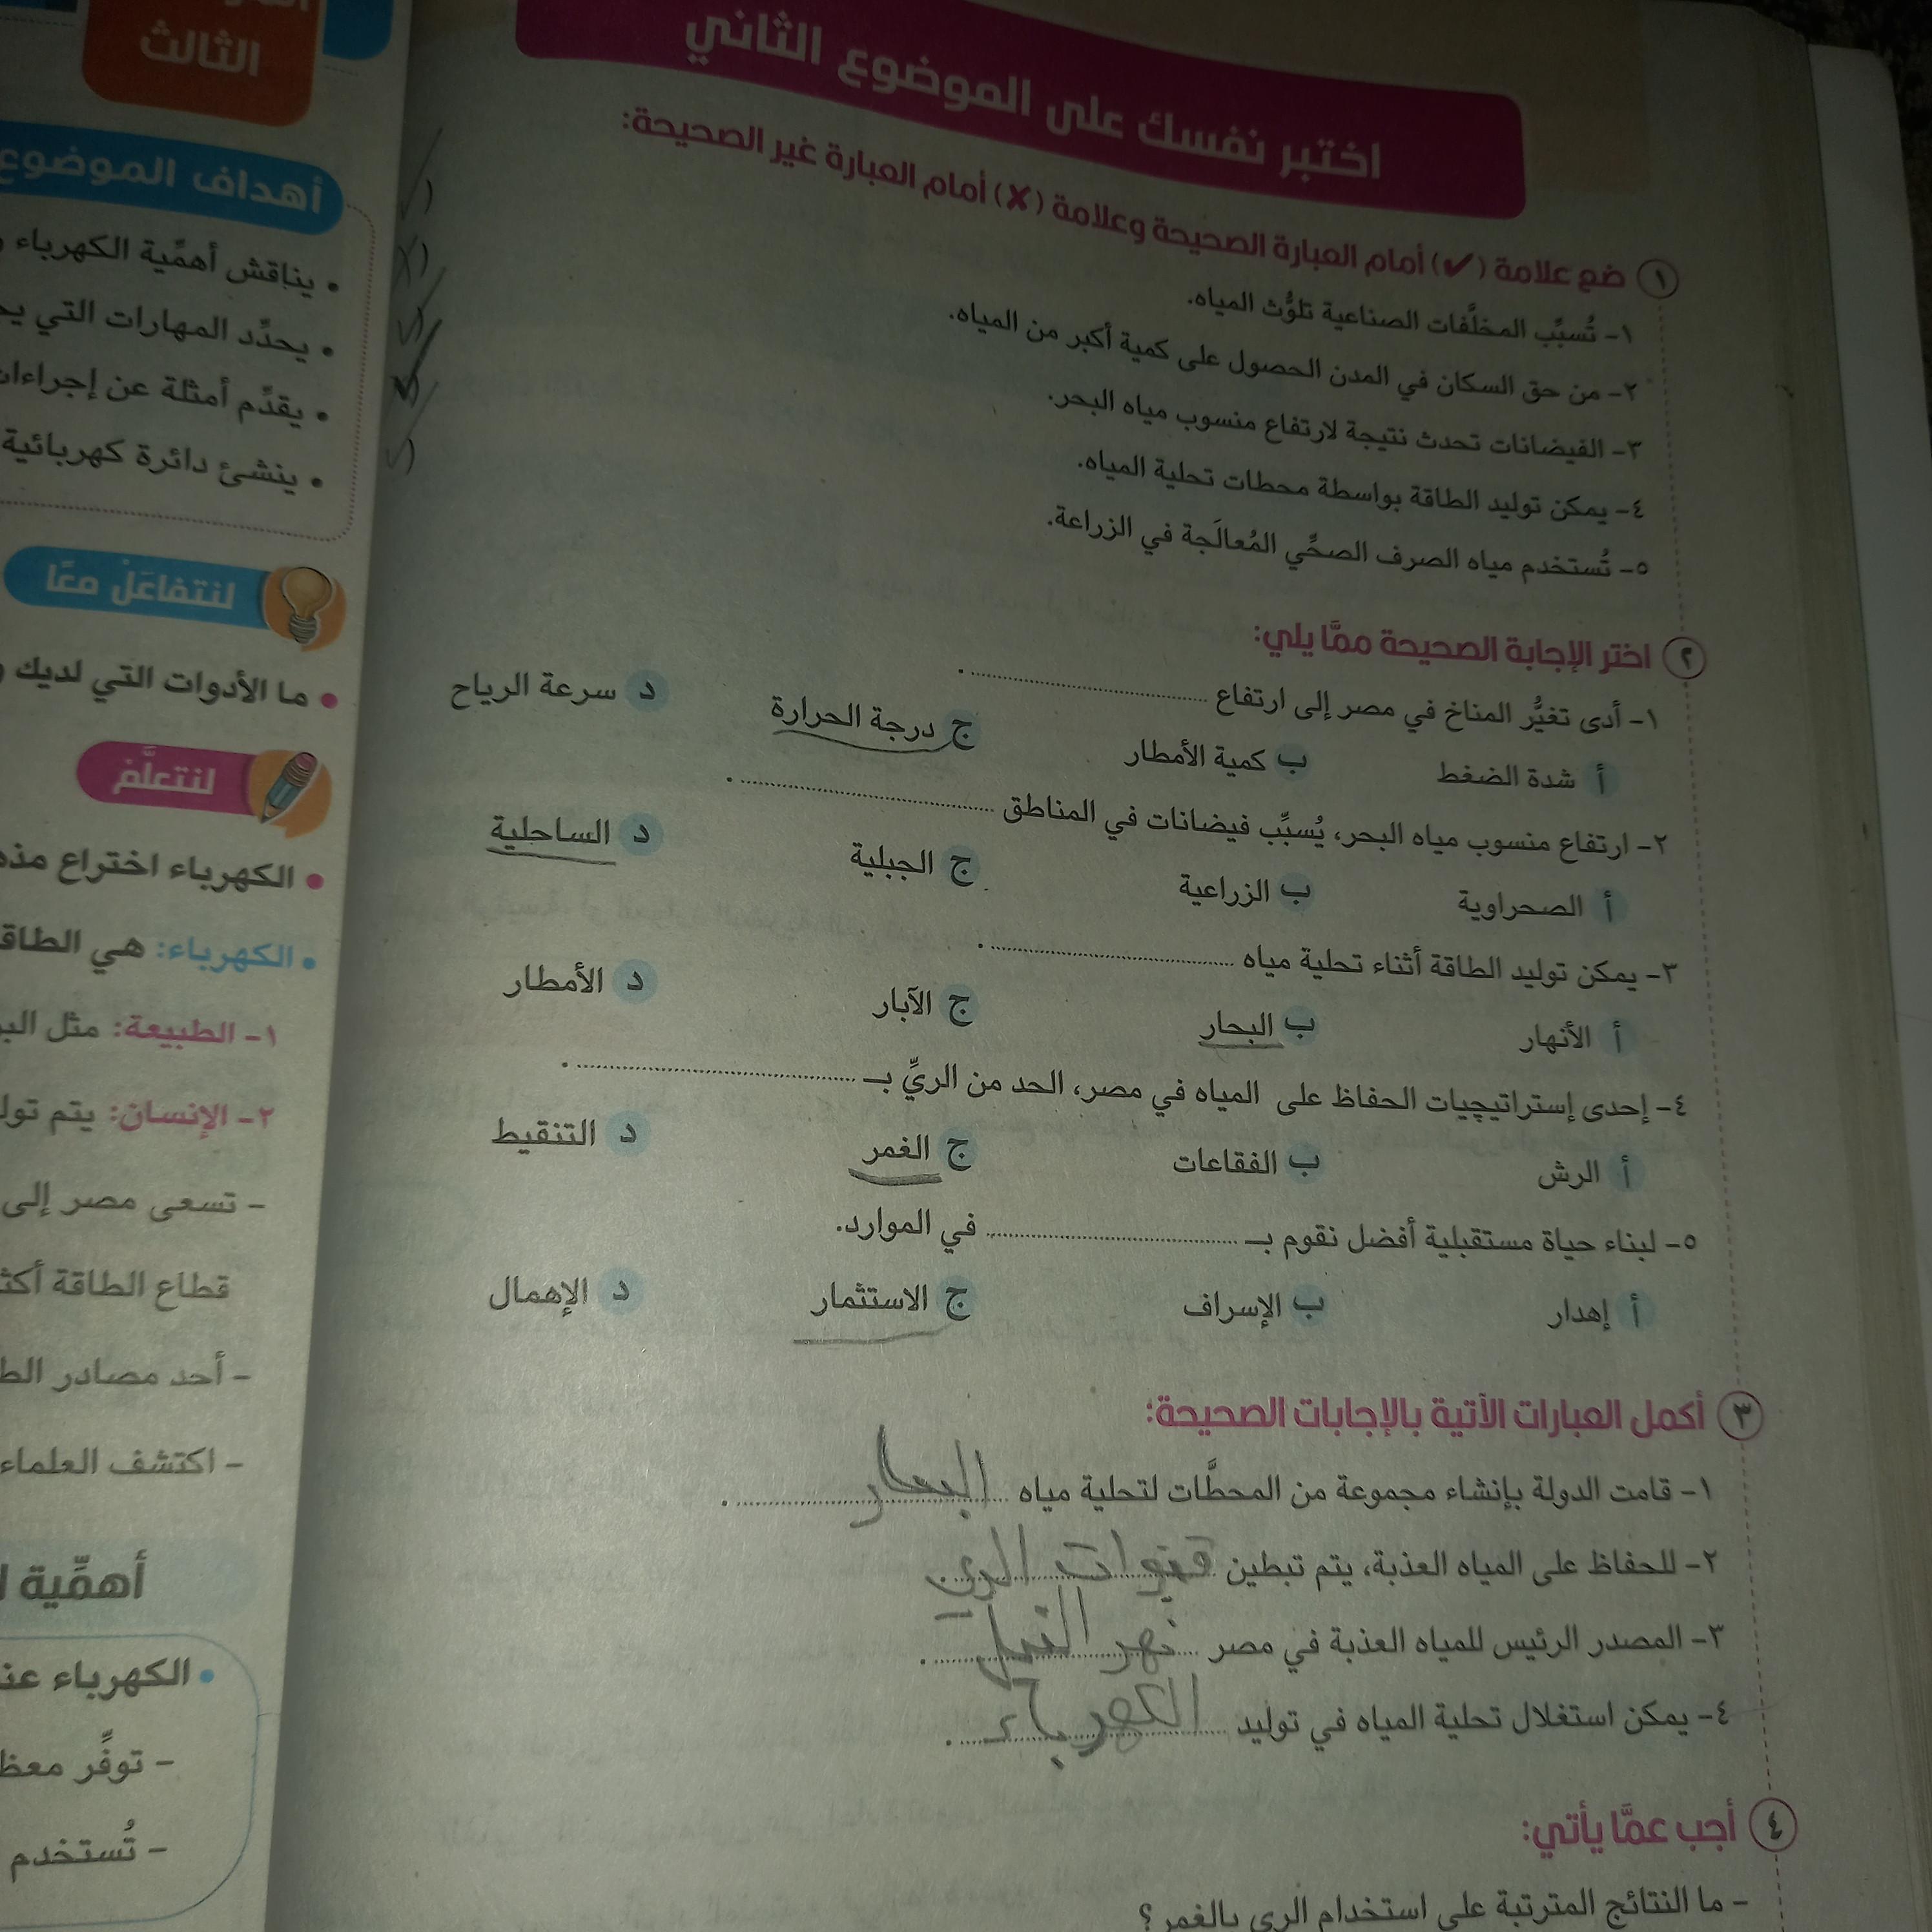 اختبر نفسك على الموضوع الثاني
١ ضع علامة (✔) أمام العبارة الصحيحة وعلامة (✘) أمام العبارة غير الصحيحة:
١- تُسبِّب المخلَّفات الصناعية تلوُّث المياه.
٢- من حق السكان في المدن الحصول على كمية أكبر من المياه.
٣- الفيضانات تحدث نتيجة لارتفاع منسوب مياه البحر.
٤- يمكن توليد الطاقة بواسطة محطات تحلية المياه.
٥- تُستخدم مياه الصرف الصحِّي المُعالَجة في الزراعة.
٢ اختر الإجابة الصحيحة ممَّا يلي:
١- أدى تغيُّر المناخ في مصر إلى ارتفاع ........................ .
أ شدة الضغط ب كمية الأمطار ج درجة الحرارة د سرعة الرياح
٢- ارتفاع منسوب مياه البحر، يُسبِّب فيضانات في المناطق ........................ .
أ الصحراوية ب الزراعية ج الجبلية د الساحلية
٣- يمكن توليد الطاقة أثناء تحلية مياه ........................ .
أ الأنهار ب البحار ج الآبار د الأمطار
٤- إحدى إستراتيچيات الحفاظ على المياه في مصر، الحد من الريِّ بـ ........................ .
أ الرش ب الفقاعات ج الغمر د التنقيط
٥- لبناء حياة مستقبلية أفضل نقوم بـ ........................ في الموارد.
أ إهدار ب الإسراف ج الاستثمار د الإهمال
٣ أكمل العبارات الآتية بالإجابات الصحيحة:
١- قامت الدولة بإنشاء مجموعة من المحطَّات لتحلية مياه البحار .
٢- للحفاظ على المياه العذبة، يتم تبطين قنوات الري .
٣- المصدر الرئيس للمياه العذبة في مصر نهر النيل .
٤- يمكن استغلال تحلية المياه في توليد الكهرباء .
٤ أجب عمَّا يأتي:
- ما النتائج المترتبة على استخدام الري بالغمر؟
الثالث
أهداف الموضوع
• يناقش أهمِّية الكهرباء
• يحدِّد المهارات التي
• يقدِّم أمثلة عن إجراءات
• ينشئ دائرة كهربائية
لنتفاعَلْ معًا
• ما الأدوات التي لديك
لنتعلَّمْ
• الكهرباء اختراع
• الكهرباء: هي
١- الطبيعة: مثل
٢- الإنسان: يتم
- تسعى مصر إلى
قطاع الطاقة
- أحد مصادر
- اكتشف العلماء
أهمِّية
• الكهرباء
- توفِّر
- تُستخدم